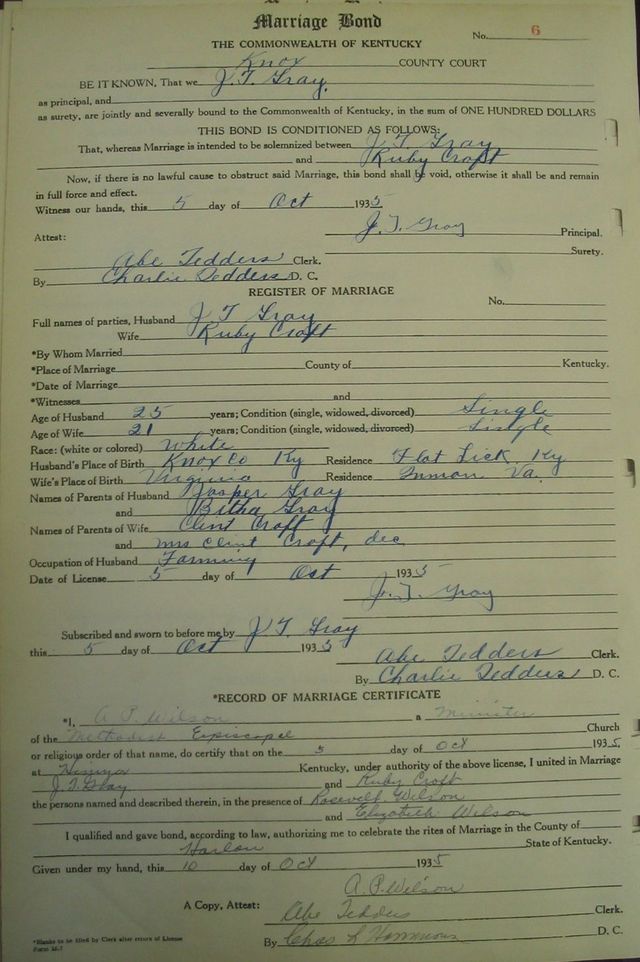 Marriage Bond
No. 6
THE COMMONWEALTH OF KENTUCKY
Knox COUNTY COURT
BE IT KNOWN, That we J. T. Gray,
as principal, and
as surety, are jointly and severally bound to the Commonwealth of Kentucky, in the sum of ONE HUNDRED DOLLARS
THIS BOND IS CONDITIONED AS FOLLOWS:
That, whereas Marriage is intended to be solemnized between J. T. Gray
and Ruby Croft
Now, if there is no lawful cause to obstruct said Marriage, this bond shall be void, otherwise it shall be and remain
in full force and effect.
Witness our hands, this 5 day of Oct 1935
J. T. Gray Principal.
Attest:
Surety.
Abe Tedders Clerk.
By Charlie Tedders D. C.
REGISTER OF MARRIAGE
No.
Full names of parties, Husband J T Gray
Wife Ruby Croft
*By Whom Married
*Place of Marriage County of Kentucky.
*Date of Marriage
*Witnesses and
Age of Husband 25 years; Condition (single, widowed, divorced) Single
Age of Wife 21 years; Condition (single, widowed, divorced) Single
Race: (white or colored) White
Husband's Place of Birth Knox Co Ky Residence Flat Lick Ky
Wife's Place of Birth Virginia Residence Inman Va.
Names of Parents of Husband Jasper Gray
and Bitha Gray
Names of Parents of Wife Clint Croft
and Mrs Clint Croft, dec
Occupation of Husband Farming
Date of License 5 day of Oct 1935
J. T. Gray
Subscribed and sworn to before me by J T. Gray
this 5 day of Oct 1935
Abe Tedders Clerk.
By Charlie Tedders D. C.
*RECORD OF MARRIAGE CERTIFICATE
*I, A. P. Wilson a Minister
of the Methodist Episcopel Church
or religious order of that name, do certify that on the 5 day of Oct 1935,
at Kentucky, under authority of the above license, I united in Marriage
J. T. Gray and Ruby Croft
the persons named and described therein, in the presence of Rosevelt Wilson
and Elizabeth Wilson
I qualified and gave bond, according to law, authorizing me to celebrate the rites of Marriage in the County of
Harlan State of Kentucky.
Given under my hand, this 10 day of Oct 1935
A. P. Wilson
A Copy, Attest: Abe Tedders Clerk.
By Chas L D. C.
*Blanks to be filled by Clerk after return of License